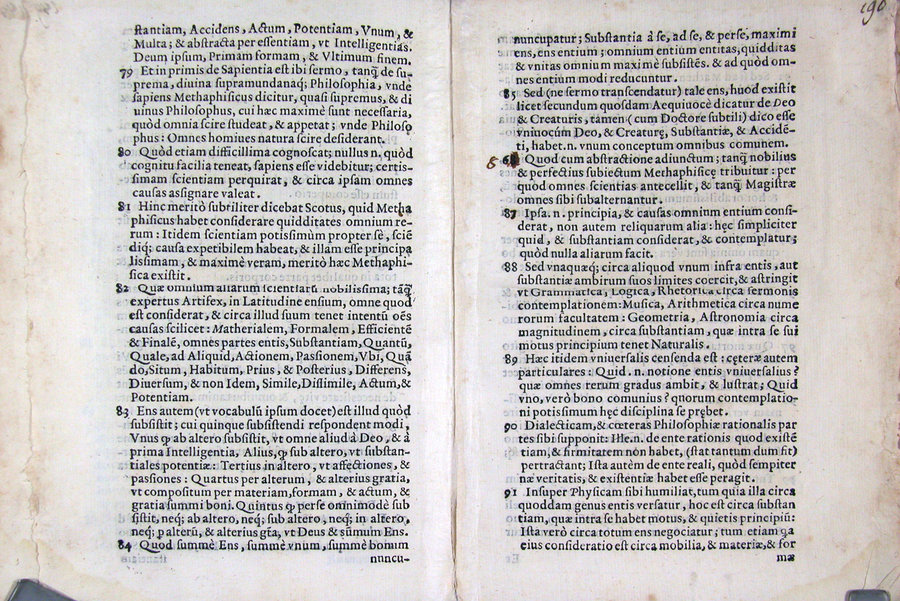 stantiam, Accidens, Actum, Potentiam, Vnum, &
Multa; & abstracta per essentiam, vt Intelligentias.
Deum ipsum, Primam formam, & Vltimum finem.
79 Et in primis de Sapientia est ibi sermo, tanq̃ de su-
prema, diuina supramundanaq; Philosophia, vnde
sapiens Methaphisicus dicitur, quasi supremus, & di
uinus Philosophus, cui hæc maximè sunt necessaria,
quòd omnia scire studeat, & appetat; vnde Philoso
phus: Omnes homiues natura scire desiderant.
80 Quòd etiam difficillima cognoscat; nullus n, quòd
cognitu facilia teneat, sapiens esse videbitur; certis-
simam scientiam perquirat, & circa ipsam omnes
causas assignare valeat.
81 Hinc meritò subtiliter dicebat Scotus, quid Metha
phisicus habet considerare quidditates omnium re-
rum: Itidem scientiam potissimùm propter sè, sciē
diq; causa expetibilem habeat, & illam esse principa
lissimam, & maximè veram, meritò hæc Methaphi-
sica existit.
82 Quæ omnium aliarum scientiarū nobilissima; tāq̃
expertus Artifex, in Latitudine ensium, omne quod
est considerat, & circa illud suum tenet intentū oēs
causas scilicet: Matherialem, Formalem, Efficientē
& Finalē, omnes partes entis, Substantiam, Quantū,
Quale, ad Aliquid, Actionem, Passionem, Vbi, Quā
do, Situm, Habitum, Prius, & Posterius, Differens,
Diuersum, & non Idem, Simile, Dissimile, Actum, &
Potentiam.
83 Ens autem (vt vocabulū ipsum docet) est illud quòd
subsistit; cui quinque subsistendi respondent modi,
Vnus ꝙ ab altero subsistit, vt omne aliud à Deo, & à
prima Intelligentia, Alius, ꝙ sub altero, vt substan-
tiales potentiæ: Tertius in altero, vt affectiones, &
passiones: Quartus per alterum, & alterius gratia,
vt compositum per materiam, formam, & actum, &
gratia summi boni. Quintus ꝙ perse omnimodè sub
sistit, neq; ab altero, neq; sub altero, neq; in altero,
neq; ꝑ alterū, & alterius gr̃a, vt Deus & sūmum Ens.
84 Quod summè Ens, summè vnum, summè bonum
nuncu-
190
nuncupatur; Substantia à se, ad se, & perse, maximi
ens, ens entium; omnium entium entitas, quidditas
& vnitas omnium maximè subsistēs. & ad quòd om-
nes entium modi reducuntur.
85 Sed (ne sermo transcendatur) tale ens, huod existit
licet secundum quosdam Aequiuocè dicatur de Deo
& Creaturis, tamen (cum Doctore subtili) dico esse
vniuocùm Deo, & Creaturę, Substantiæ, & Accidē-
ti, habet.n. vnum conceptum omnibus comunem.
86 Quod cum abstractione adiunctum; tanq̃ nobilius
& perfectius subiectum Methaphisicę tribuitur: per
quòd omnes scientias antecellit, & tanq̃ Magistræ
omnes sibi subalternantur.
87 Ipsa.n. principia, & causas omnium entium consi-
derat, non autem reliquarum alia: hęc simpliciter
quid, & substantiam considerat, & contemplatur;
quòd nulla aliarum facit.
88 Sed vnaquæq; circa aliquod vnum infra entis, aut
substantiæ ambirum suos limites coercit, & astringit
vt Grammatica, Logica, Rhetorica circa sermonis
contemplationem: Musica, Arithmetica circa nume
rorum facultatem: Geometria, Astronomia circa
magnitudinem, circa substantiam, quæ intra se sui
motus principium tenet Naturalis.
89 Hæc itidem vniuersalis censenda est: cęteræ autem
particulares: Quid.n. notione entis vniuersalius?
quæ omnes rerum gradus ambit, & lustrat; Quid
vno, verò bono comunius? quorum contemplatio-
ni potissimum hęc disciplina se prębet.
90 Dialecticam, & cœteras Philosophiæ rationalis par
tes sibi supponit: Ille.n. de ente rationis quod existē
tiam, & firmitatem non habet, (stat tantum dum fit)
pertractant; Ista autem de ente reali, quòd sempiter
næ veritatis, & existentiæ habet esse peragit.
91 Insuper Physicam sibi humiliat, tum quia illa circa
quoddam genus entis versatur, hoc est circa substan
tiam, quæ intra se habet motus, & quietis principiū:
Ista verò circa totum ens negociatur; tum etiam ꝗa
eius consideratio est circa mobilia, & materiæ, & for
mæ